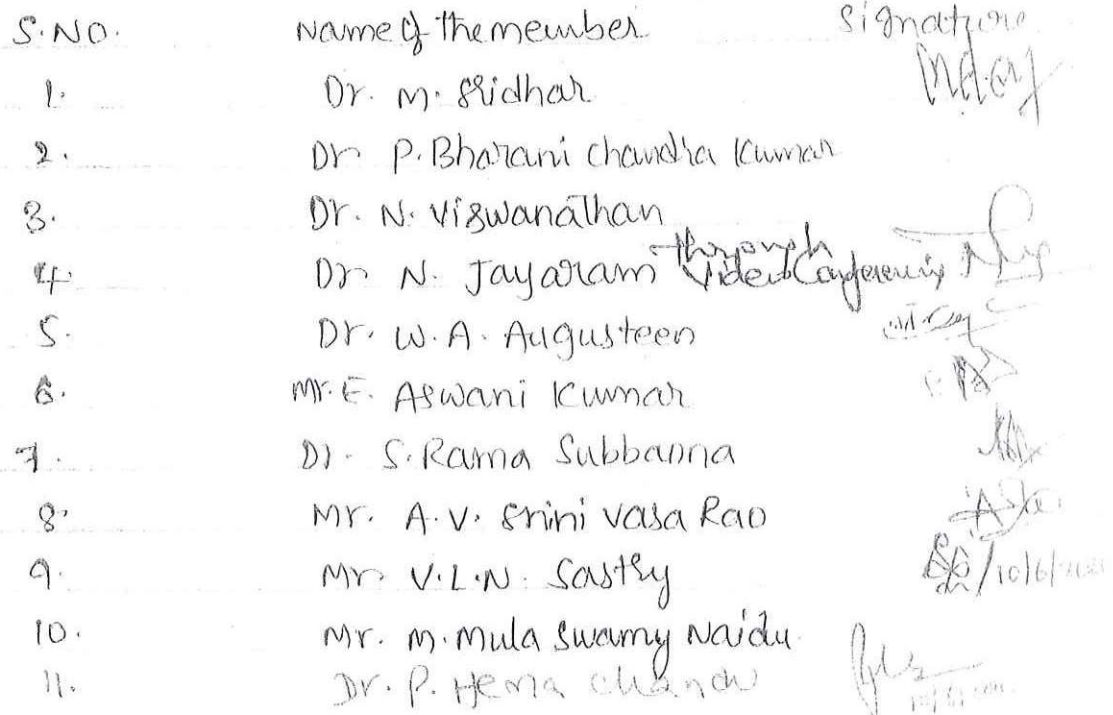 S.NO. Name of the member Signature
1. Dr. M. Sridhar
2. Dr P. Bharani Chandra Kumar
3. Dr. N. Viswanathan
4. Dr N. Jayaram through Video Conferencing
5. Dr. W.A. Augusteen
6. Mr. E. Aswani Kumar
7. Dr. S. Rama Subbanna
8. Mr. A.V. Srinivasa Rao
9. Mr V.L.N. Sastry /10/6/
10. Mr. M. Mula Swamy Naidu
11. Dr. P. Hema